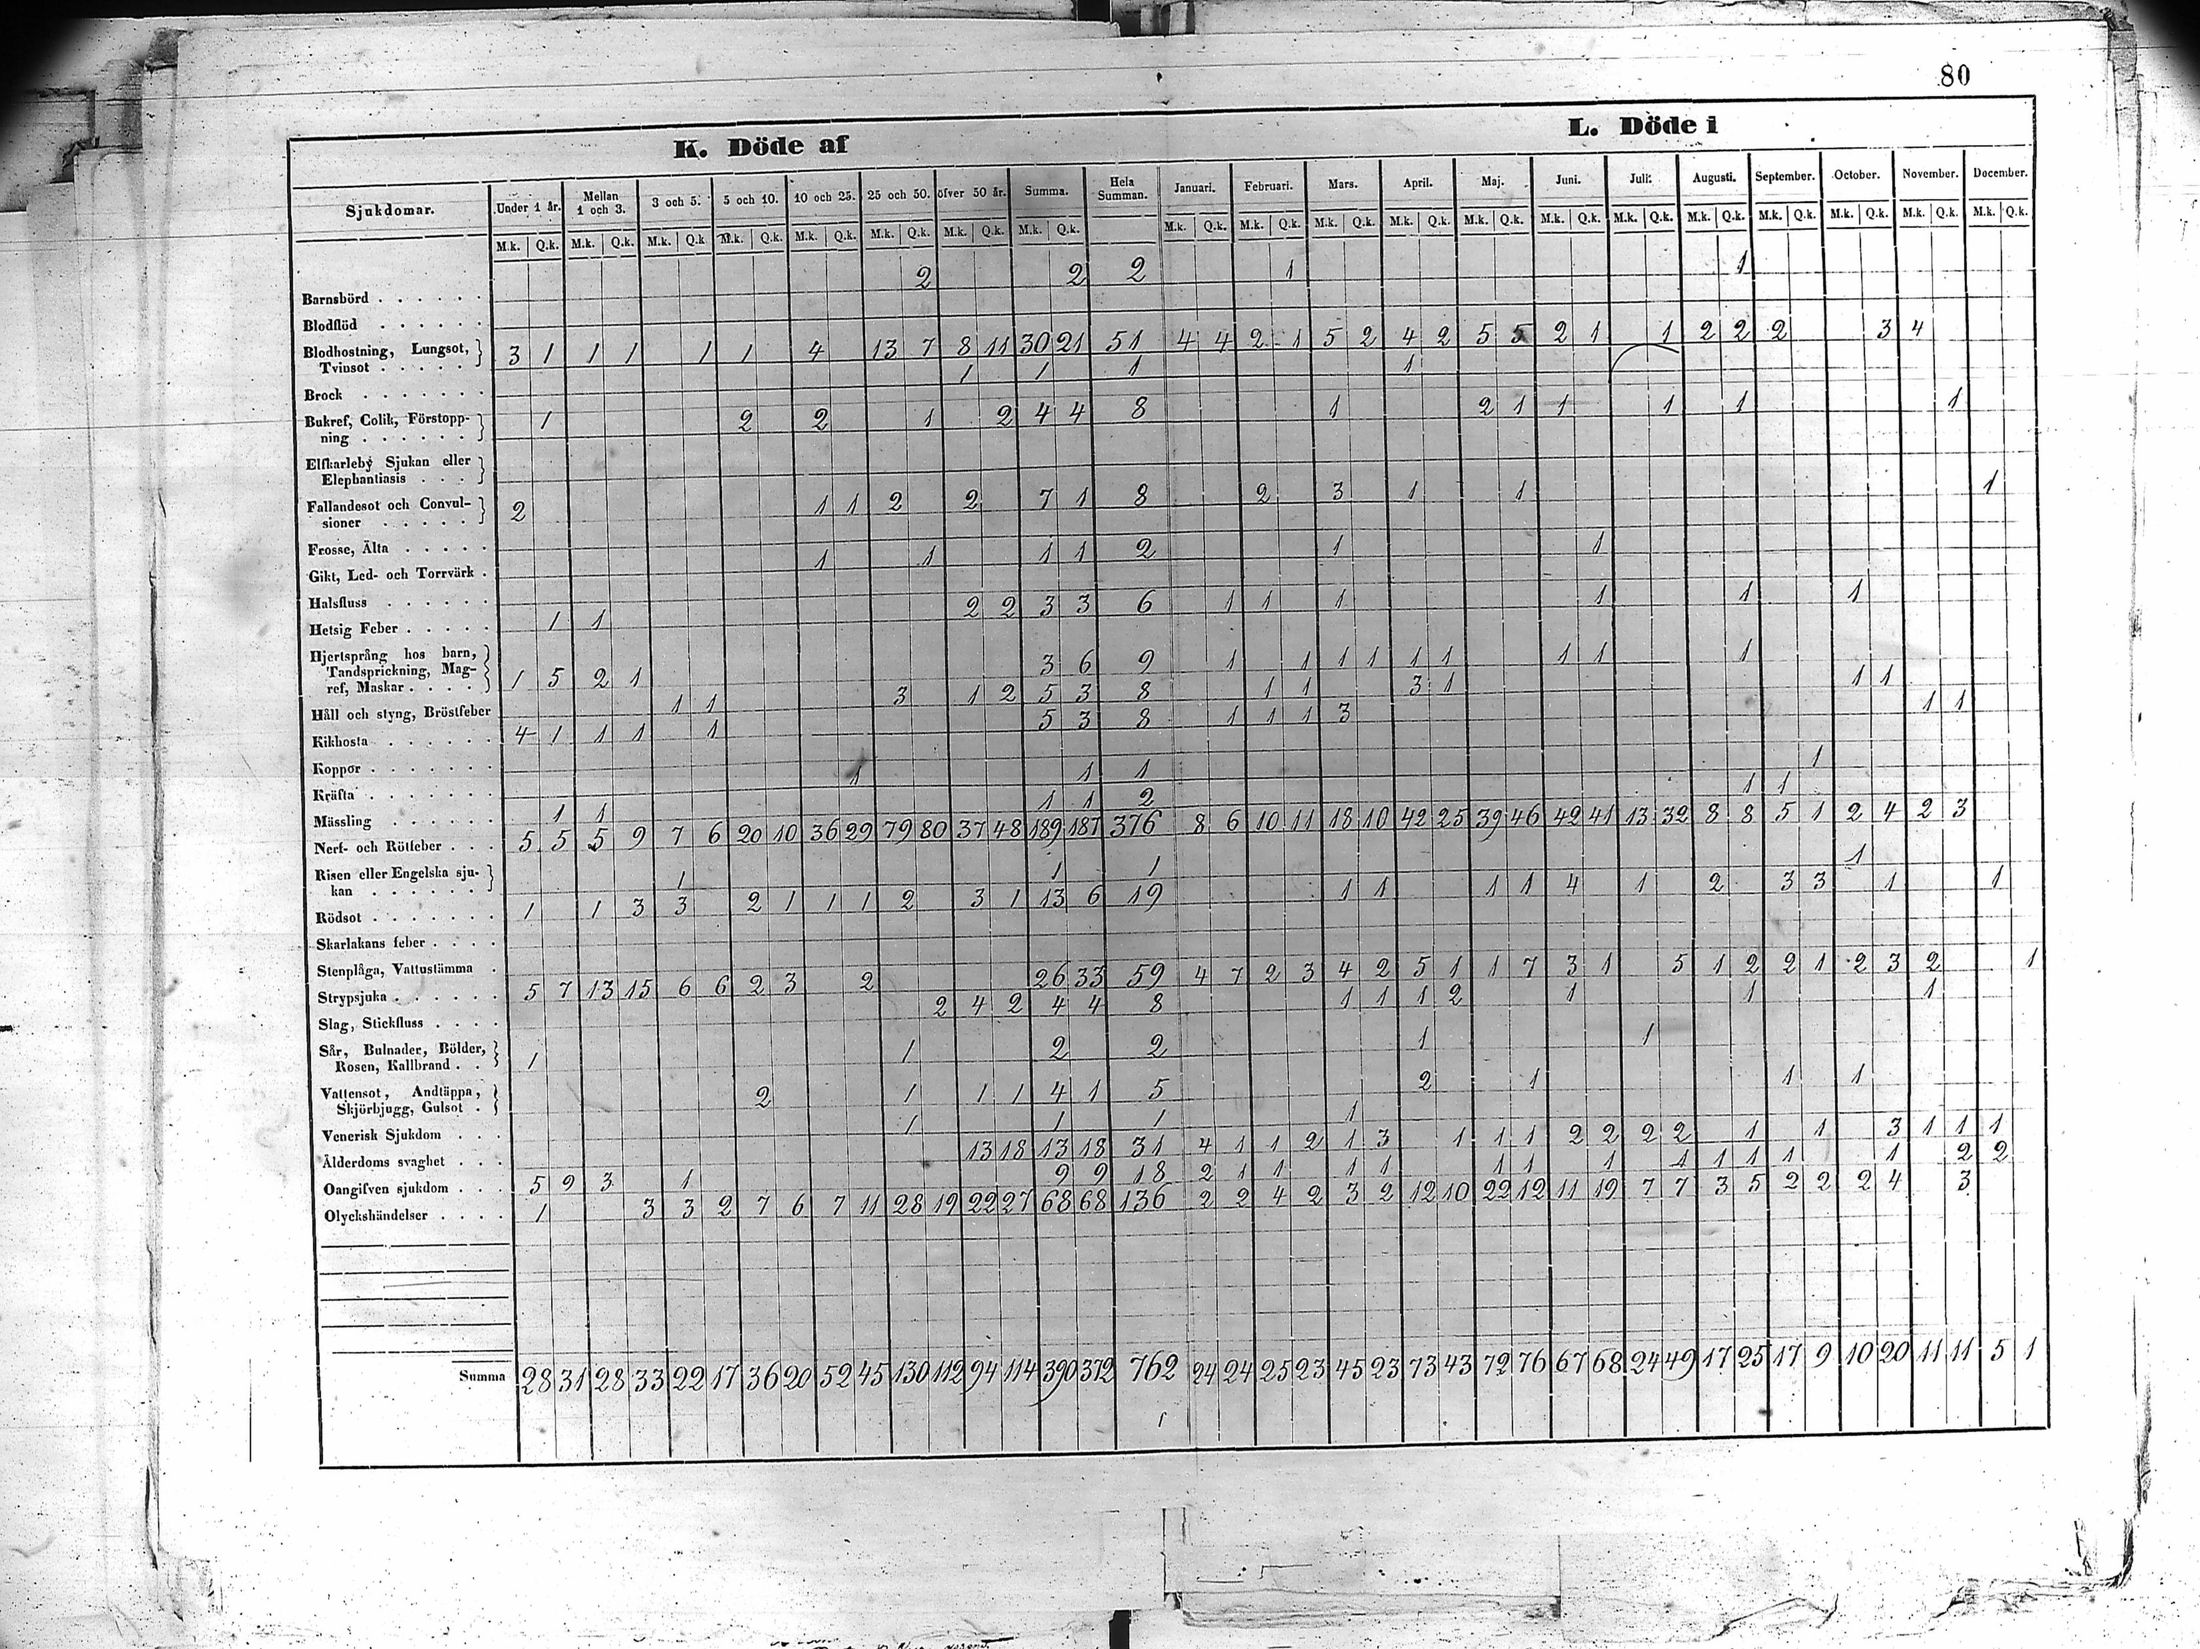 80
K. Döde af L. Döde i
Sjukdomar. Under 1 år. Mellan 1 och 3. 3 och 5. 5 och 10. 10 och 25. 25 och 50. öfver 50 år. Summa. Hela Summan. Januari. Februari. Mars. April. Maj. Juni. Juli. Augusti. September. October. November. December.
M.k. Q.k. M.k. Q.k. M.k. Q.k. M.k. Q.k. M.k. Q.k. M.k. Q.k. M.k. Q.k. M.k. Q.k. M.k. Q.k. M.k. Q.k. M.k. Q.k. M.k. Q.k. M.k. Q.k. M.k. Q.k. M.k. Q.k. M.k. Q.k. M.k. Q.k. M.k. Q.k. M.k. Q.k. M.k. Q.k.
Barnsbörd 2 2 2 1 1
Blodflöd
Blodhostning, Lungsot,
Tvinsot 3 1 1 1 1 1 4 13 7 8 11 30 21 51 4 4 2 1 5 2 4 2 5 5 2 1 1 2 2 2 3 4
Brock 1 1 1 1
Bukref, Colik, Förstopp-
ning 1 2 2 1 2 4 4 8 1 2 1 1 1 1 1
Elfkarleby Sjukan eller
Elephantiasis
Fallandesot och Convul-
sioner 2 1 1 2 2 7 1 8 2 3 1 1 1
Frosse, Älta
Gikt, Led- och Torrvärk 1 1 1 1 2 1 1
Halsfluss
Hetsig Feber 1 1 2 2 3 3 6 1 1 1 1 1 1
Hjertsprång hos barn,
Tandsprickning, Mag-
ref, Maskar 1 5 2 1 3 6 9 1 1 1 1 1 1 1 1 1
Håll och styng, Bröstfeber 1 1 3 1 2 5 3 8 1 1 3 1 1 1
Kikhosta 4 1 1 1 1 5 3 8 1 1 1 3 1 1
Koppor
Kräfta 1 1 1 1
Mässling 1 1 1 1 2 1 1
Nerf- och Rötfeber 5 5 5 9 7 6 20 10 36 29 79 80 37 48 189 187 376 8 6 10 11 18 10 42 25 39 46 42 41 13 32 8 8 5 1 2 4 2 3
Risen eller Engelska sju-
kan 1 1 1 1
Rödsot 1 1 3 3 2 1 1 1 2 3 1 13 6 19 1 1 1 1 4 1 2 3 3 1 1
Skarlakans feber
Stenplåga, Vattustämma
Strypsjuka 5 7 13 15 6 6 2 3 2 26 33 59 4 7 2 3 4 2 5 1 1 7 3 1 5 1 2 2 1 2 3 2 1
Slag, Stickfluss 2 4 2 4 4 8 1 1 1 2 1 1 1
Sår, Bulnader, Bölder,
Rosen, Kallbrand 1 1 2 2 1 1
Vattensot, Andtäppa,
Skjörbjugg, Gulsot 2 1 1 1 4 1 5 2 1 1 1
Venerisk Sjukdom 1 1 1 1
Ålderdoms svaghet 13 18 13 18 31 4 1 1 2 1 3 1 1 1 2 2 2 2 1 1 3 1 1 1
Oangifven sjukdom 5 9 3 1 9 9 18 2 1 1 1 1 1 1 1 1 1 1 1 1 2 2
Olyckshändelser 1 3 3 2 7 6 7 11 28 19 22 27 68 68 136 2 2 4 2 3 2 12 10 22 12 11 19 7 7 3 5 2 2 2 4 3
Summa 28 31 28 33 22 17 36 20 52 45 130 112 94 114 390 372 762 24 24 25 23 45 23 73 43 72 76 67 68 24 49 17 25 17 9 10 20 11 11 5 1